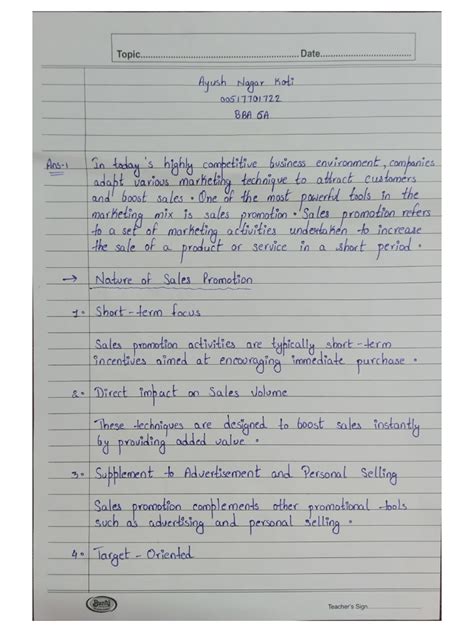 Topic.................... Date....................
Ayush Nagar Koti
00517701722
BBA 5A
Ans-1 In today's highly competitive business environment, companies
adapt various marketing technique to attract customers
and boost sales. One of the most powerful tools in the
marketing mix is sales promotion. Sales promotion refers
to a set of marketing activities undertaken to increase
the sale of a product or service in a short period.
→ Nature of Sales Promotion
1. Short-term focus
Sales promotion activities are typically short-term
incentives aimed at encouraging immediate purchase.
2. Direct impact on Sales Volume
These techniques are designed to boost sales instantly
by providing added value.
3. Supplement to Advertisement and Personal Selling
Sales promotion complements other promotional tools
such as advertising and personal selling.
4. Target - Oriented
Teacher's Sign....................